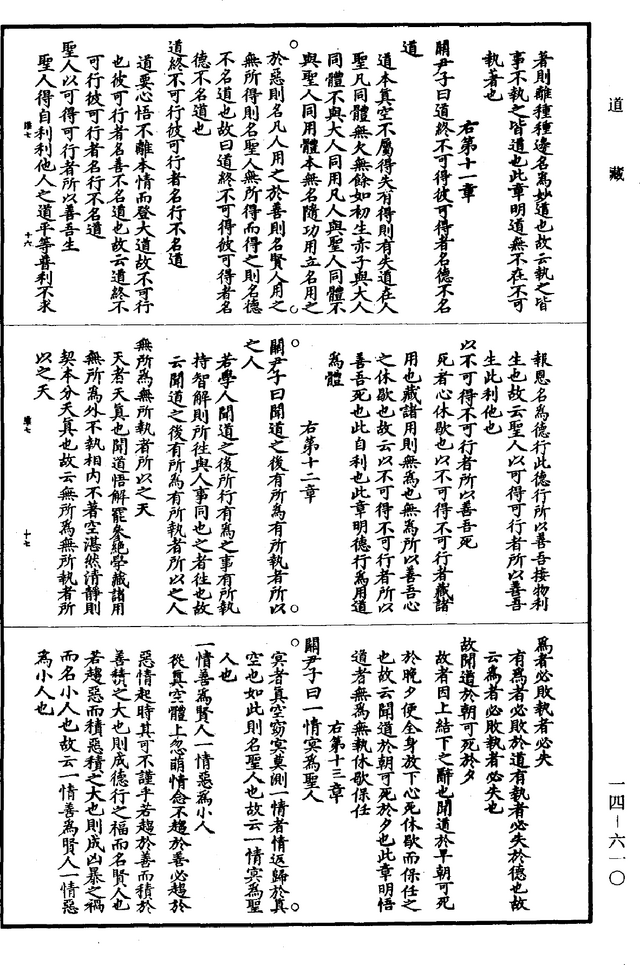 道藏
著則離種種邊名為妙道也故云執之皆
事不執之皆道也此章明道無不在不可
執著也
右第十一章
關尹子曰道終不可得彼可得者名德不名
道
道本真空不屬得失有得則有失道在人
聖凡同體無欠無餘如初生赤子與大人
同體不與大人同用凡人與聖人同體不
與聖人同用體本無名隨功用立名用之
於惡則名凡人用之於善則名賢人用之
無所得則名聖人無所得而得之則名德
不名道也故曰道終不可得彼可得者名
德不名道也
道終不可行彼可行者名行不名道
道要心悟不離本情而登大道故不可行
也彼可行者名善不名道也故云道終不
可行彼可行者名行不名道
聖人以可得可行者所以善吾生
聖人得自利利他人之道平等普利不求
十六
報恩名為德行此德行所以善吾接物利
生也故云聖人以可得可行者所以善吾
生此利他也
以不可得不可行者所以善吾死
死者心休歇也以不可得不可行者藏諸
用也藏諸用則無為也無為所以善吾心
之休歇也故云以不可得不可行者所以
善吾死也此自利也此章明德行為用道
為體
右第十二章
關尹子曰聞道之後有所為有所執者所以
之人
若學人聞道之後所行有為之事有所執
持智解則所往與人事同也之者往也故
云聞道之後有所為有所執者所以之人
無所為無所執者所以之天
天者天真也聞道悟解罷參絕學藏諸用
無所為外不執相內不著空湛然清靜則
契本分天真也故云無所為無所執者所
以之天
十七
為者必敗執者必失
有為者必敗於道有執者必失於德也故
云為者必敗執者必失也
故聞道於朝可死於夕
故者因上結下之辭也聞道於早朝可死
於晚夕便全身放下心死休歇而保任之
也故云聞道於朝可死於夕也此章明悟
道者無為無執休歇保任
右第十三章
關尹子曰一情冥為聖人
冥者真空窈冥莫測一情者情返歸於真
空也如此則名聖人也故云一情冥為聖
人也
一情善為賢人一情惡為小人
從真空體上忽萌情念不趨於善必趨於
惡情起時其可不謹乎若趨於善而積於
善積之大也則成德行之福而名賢人也
若趨惡而積惡積之大也則成凶暴之禍
而名小人也故云一情善為賢人一情惡
為小人也
一四－六一〇